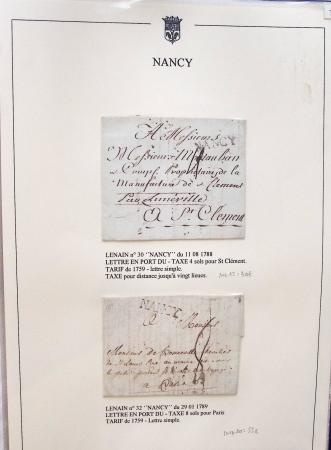 NANCY
NANCY
A Messieurs
Messieurs Montauban
& Comp.e Propriétaire de la
Manufacture de St Clement
Par Luneville
A St Clement
LENAIN n° 30 ´´NANCY´´ du 11 08 1788
LETTRE EN PORT DU - TAXE 4 sols pour St Clément.
TARIF de 1759 - lettre simple.
TAXE pour distance jusqu'à vingt lieues.
NANCY
A Monsieur
Monsieur de
a Paris
LENAIN n° 32 ´´NANCY´´ du 29 01 1789
LETTRE EN PORT DU - TAXE 8 sols pour Paris
TARIF de 1759 - Lettre simple.